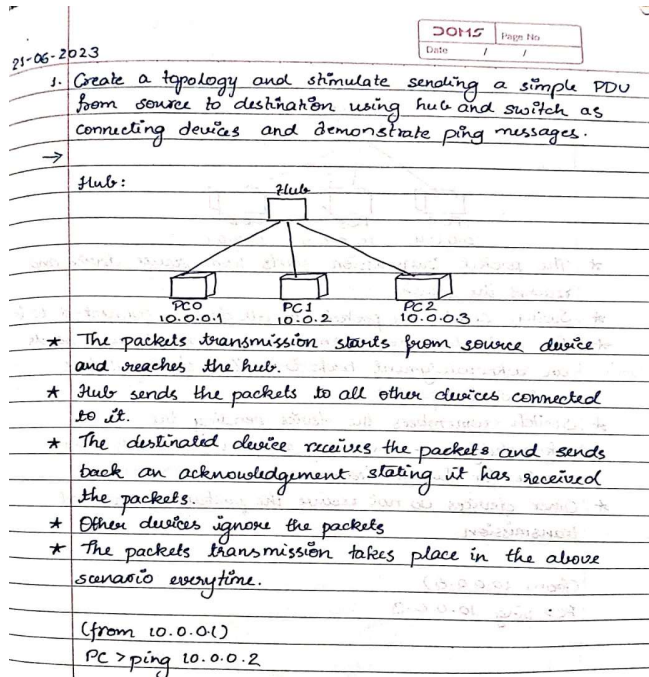 DOMS Page No
Date / /
21-06-2023
1. Create a topology and stimulate sending a simple PDU
from source to destination using hub and switch as
connecting devices and demonstrate ping messages.
→
Hub:
Hub
PC0 PC1 PC2
10.0.0.1 10.0.0.2 10.0.0.3
* The packets transmission starts from source device
and reaches the hub.
* Hub sends the packets to all other devices connected
to it.
* The destinated device receives the packets and sends
back an acknowledgement stating it has received
the packets.
* Other devices ignore the packets
* The packets transmission takes place in the above
scenario everytime.
(from 10.0.0.1)
PC > ping 10.0.0.2